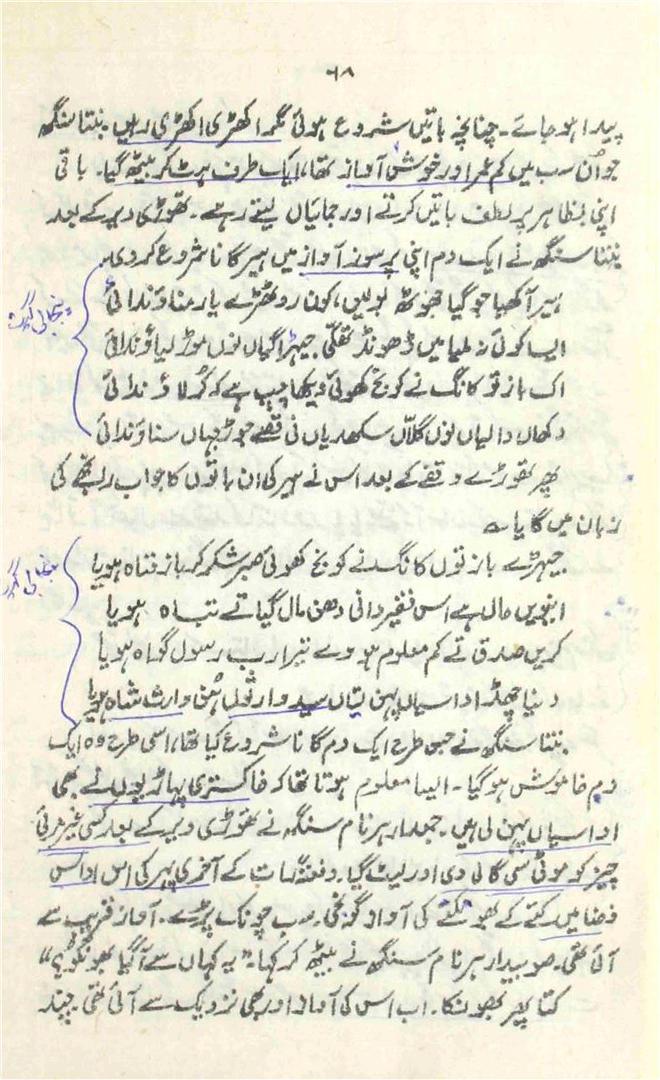 ۶۸
پیدا ہو جائے۔ چنانچہ باتیں شروع ہوئی مگر اکھڑی اکھڑی رہیں۔ بنتا سنگھ
جو اُن سب میں کم عمر اور خوش آواز تھا، ایک طرف ہٹ کر بیٹھ گیا۔ باقی
اپنی بظاہر پُر لطف باتیں کرتے اور جمائیاں لیتے رہے۔ تھوڑی دیر کے بعد
بنتا سنگھ نے ایک دم اپنی پرسوز آواز میں ہیر گانا شروع کر دی۔
ہیر آکھیا جوگیا جھوٹھ بولیں، کون روٹھڑے یار مناؤندائی
ایسا کوئی نہ ملیا میں ڈھونڈ تھکی جیہڑا گیاں نوں موڑ لیاؤندائی
اک باز تو کانگ نے کونج کھوئی دیکھا چپ ہے کہ کُرلاؤندائی
دکھاں والیاں نوں گلّاں سکھدیاں نی قصے جوڑ جہاں سناؤندائی
پھر تھوڑے وقفے کے بعد اس نے ہیر کی ان باتوں کا جواب رانجھے کی
زبان میں گایا ؎
جیہڑے باز توں کانگ نے کونج کھوئی صبر شکر کر باز فناہ ہویا
اینویں حال ہے اس فقیر دا نی دھن مال گیا تے تباہ ہویا
کریں صدق تے کم معلوم ہووے تیرا رب رسول گواہ ہویا
دنیا چھڈ اداسیاں پہن لتیاں سید وارثوں ہُن وارث شاہ ہویا
بنتا سنگھ نے جس طرح ایک دم گانا شروع کیا تھا، اسی طرح وہ ایک
دم خاموش ہو گیا۔ ایسا معلوم ہوتا تھا کہ خاکستری پہاڑیوں نے بھی
اداسیاں پہن لی ہیں۔ جمعدار ہرنام سنگھ نے تھوڑی دیر کے بعد کسی غیر مرئی
چیز کو موٹی سی گالی دی اور لیٹ گیا۔ دفعتہً رات کے آخری پہر کی اس اداس
فضا میں کتے کے بھونکنے کی آواز گونجی۔ سب چونک پڑے۔ آواز قریب سے
آئی تھی۔ صوبیدار ہرنام سنگھ نے بیٹھ کر کہا۔ "یہ کہاں سے آ گیا بھونکو؟"
کتا پھر بھونکا۔ اب اس کی آواز اور بھی نزدیک سے آئی تھی۔ چند